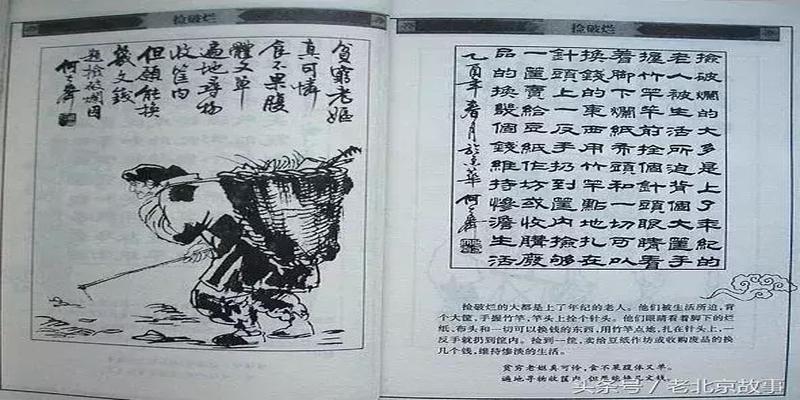 捡破烂
貧窮老嫗
真可憐
食不果腹
體又單
遍地尋物
收筐内
但願能換
幾文錢
題撿破爛圖
何大齊
捡破烂
撿破爛的大多是上了年紀的
老人被生活所迫背大筐手
握竹竿竿前拴個針頭眼睛看
着脚下爛紙布頭和一切可以
換錢的東西用竹竿點地扎在
針頭上一反手扔到筐内撿够
一筐賣給豆紙作坊或收購廢
品的換幾個錢維持慘澹生活
乙酉年春月於京華何大齊
捡破烂的大都是上了年纪的老人。他们被生活所迫,背
个大筐,手握竹竿,竿头上拴个针头。他们眼睛看着脚下的烂
纸、布头和一切可以换钱的东西,用竹竿点地,扎在针头上,一
反手就扔到筐内。捡到一筐,卖给豆纸作坊或收购废品的换
几个钱,维持惨淡的生活。
贫穷老妪真可怜,食不果腹体又单。
遍地寻物收筐内,但愿能换几文钱。
头条号/老北京故事